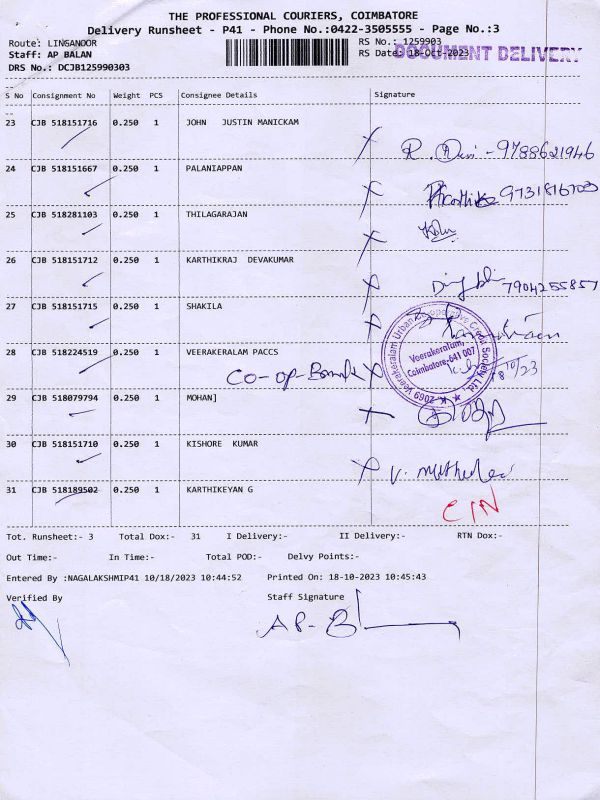 THE PROFESSIONAL COURIERS, COIMBATORE
Delivery Runsheet - P41 - Phone No.:0422-3505555 - Page No.:3
Route: LINGANOOR
RS No.: 1259903
Staff: AP BALAN
RS Date: 18-Oct-2023
DOCUMENT DELIVERY
DRS No.: DCJB125990303
S No Consignment No Weight PCS Consignee Details Signature
23 CJB 518151716 0.250 1 JOHN JUSTIN MANICKAM
R. Devi - 9788621946
24 CJB 518151667 0.250 1 PALANIAPPAN
9731816703
25 CJB 518281103 0.250 1 THILAGARAJAN
26 CJB 518151712 0.250 1 KARTHIKRAJ DEVAKUMAR
7904255857
27 CJB 518151715 0.250 1 SHAKILA
28 CJB 518224519 0.250 1 VEERAKERALAM PACCS
Co-op-Bank
Veerakeralam Urban Cooperative Credit Society Ltd.
K. 2069
Veerakeralam,
Coimbatore-641 007
18/10/23
29 CJB 518079794 0.250 1 MOHAN]
30 CJB 518151710 0.250 1 KISHORE KUMAR
31 CJB 518189502 0.250 1 KARTHIKEYAN G
C/N
Tot. Runsheet:- 3 Total Dox:- 31 I Delivery:- II Delivery:- RTN Dox:-
Out Time:- In Time:- Total POD:- Delvy Points:-
Entered By :NAGALAKSHMIP41 10/18/2023 10:44:52 Printed On: 18-10-2023 10:45:43
Verified By Staff Signature
AP-B